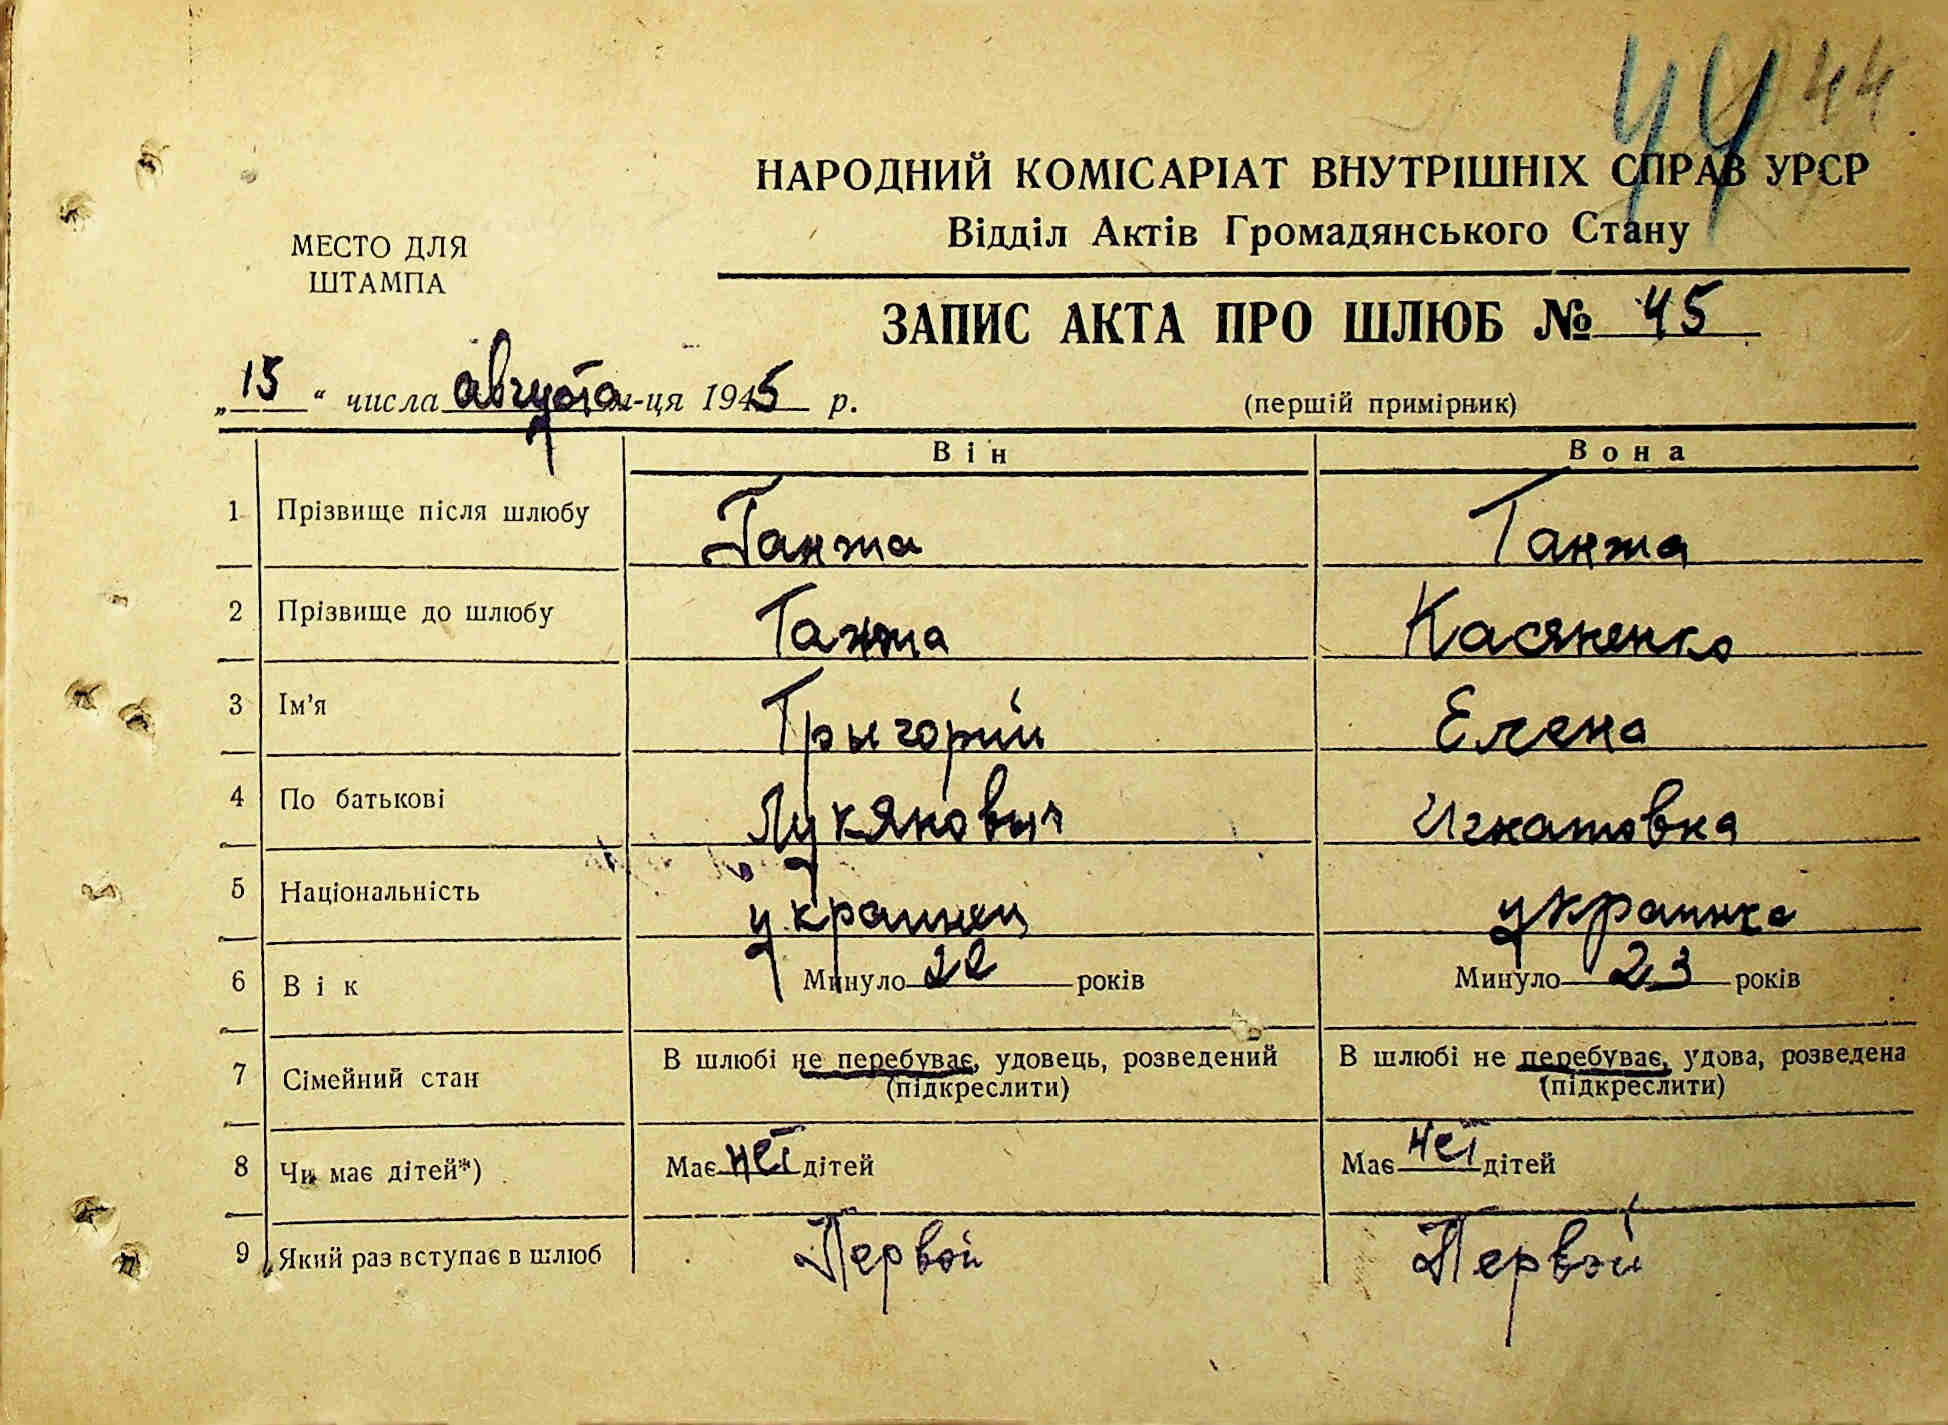 44 44
НАРОДНИЙ КОМІСАРІАТ ВНУТРІШНІХ СПРАВ УРСР
Відділ Актів Громадянського Стану
МЕСТО ДЛЯ
ШТАМПА
ЗАПИС АКТА ПРО ШЛЮБ № 45
„15“ числа августа м-ця 1945 р. (першій примірник)
Він Вона
1 Прізвище після шлюбу Ганжа Ганжа
2 Прізвище до шлюбу Ганжа Касяненко
3 Ім'я Грыгорий Елена
4 По батькові Лукяновыч Игнатовна
5 Національність украинец украинка
6 Вік Минуло 22 років Минуло 23 років
7 Сімейний стан В шлюбі не перебуває, удовець, розведений В шлюбі не перебуває, удова, розведена
(підкреслити) (підкреслити)
8 Чи має дітей*) Має нет дітей Має нет дітей
9 Який раз вступає в шлюб Первой Первой